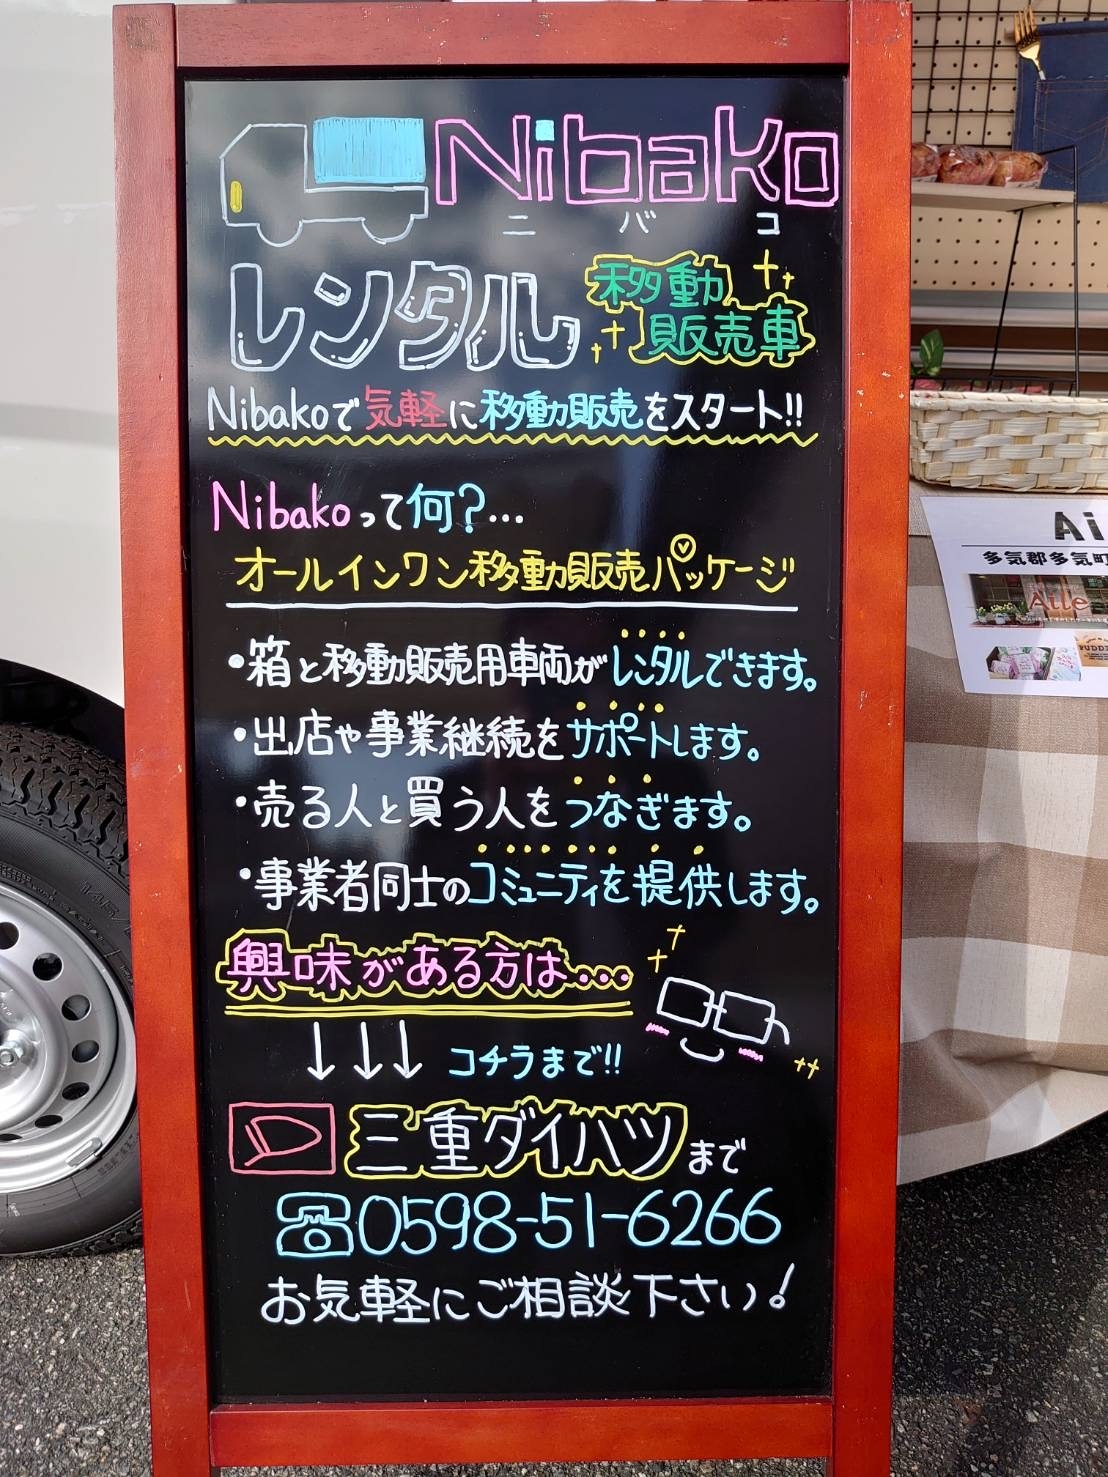 Nibako
ニバコ
レンタル
移動
販売車
Nibakoで気軽に移動販売をスタート!!
Nibakoって何?...
オールインワン移動販売パッケージ
・箱と移動販売用車両がレンタルできます。
・出店や事業継続をサポートします。
・売る人と買う人をつなぎます。
・事業者同士のコミュニティを提供します。
興味がある方は...
↓↓↓ コチラまで!!
三重ダイハツまで
☎0598-51-6266
お気軽にご相談下さい!
Ai
多気郡多気町
Aile
PUDDI